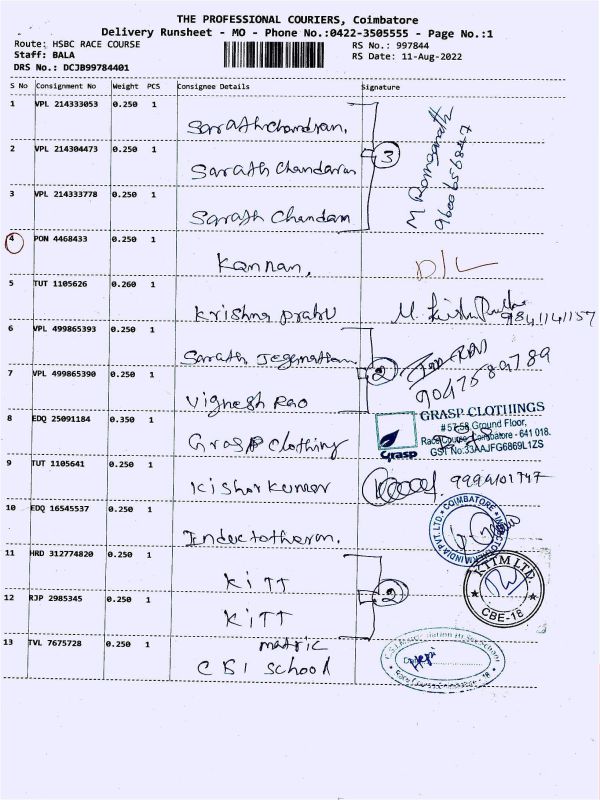 THE PROFESSIONAL COURIERS, Coimbatore
Delivery Runsheet - MO - Phone No.:0422-3505555 - Page No.:1
Route: HSBC RACE COURSE
RS No.: 997844
Staff: BALA
RS Date: 11-Aug-2022
DRS No.: DCJB99784401
S No Consignment No Weight PCS Consignee Details Signature
1 VPL 214333053 0.250 1
Sarathchandran,
2 VPL 214304473 0.250 1
Sarath Chandaran
3
3 VPL 214333778 0.250 1
Sarath Chandam
M Ramanath
9600659847
4 PON 4468433 0.250 1
Kannan, D/L
5 TUT 1105626 0.260 1
Krishna prabu
9841141157
6 VPL 499865393 0.250 1
Sarath Jegenathan
2
7 VPL 499865390 0.250 1
Vignesh Rao
9047589789
8 EDQ 25091184 0.350 1
Grasp Clothing
GRASP CLOTHINGS
#57-58 Ground Floor,
Race Course, Coimbatore - 641 018.
GST No:33AAJFG6869L1ZS
Grasp
9 TUT 1105641 0.250 1
Kishor Kumar
10 EDQ 16545537 0.250 1
Inductotherm,
INDUCTOTHERM INDIA PVT. LTD.
COIMBATORE
11 HRD 312774820 0.250 1
KITT
2
12 RJP 2985345 0.250 1
KITT
KTTM LTD
CBE-18
13 TVL 7675728 0.250 1
matric
CBI School